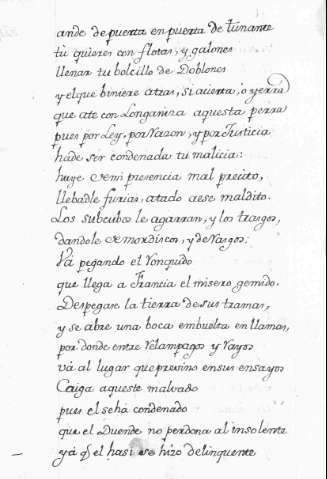 ande de puerta en puerta de tunante
tu quieres con flotas, y galones
llenar tu bolcillo de Doblones
y el que biniere atras, si acierta, o yerra
que ate con Longaniza aquesta perra
pues por Ley, por Razon, y por Justicia
hade ser condenada tu malicia:
huye de mi presencia mal precito,
llebadle furias, atado a ese maldito.
Los subcubos le agarran, y los trasgos,
dandole de mordiscos, y de rasgos:
Vá pegando el ronquido
que llega a Francia el misero gemido.
Despegase la tierra de sus tramas,
y se abre una boca embuelta en llamas,
por donde entre relampagos y rayos
vá al lugar que previno en sus ensayos
Caiga aqueste malvado
pues el se há condenado
que el Duende no perdona al insolente
yá q̃ el hasi se hizo delinquente